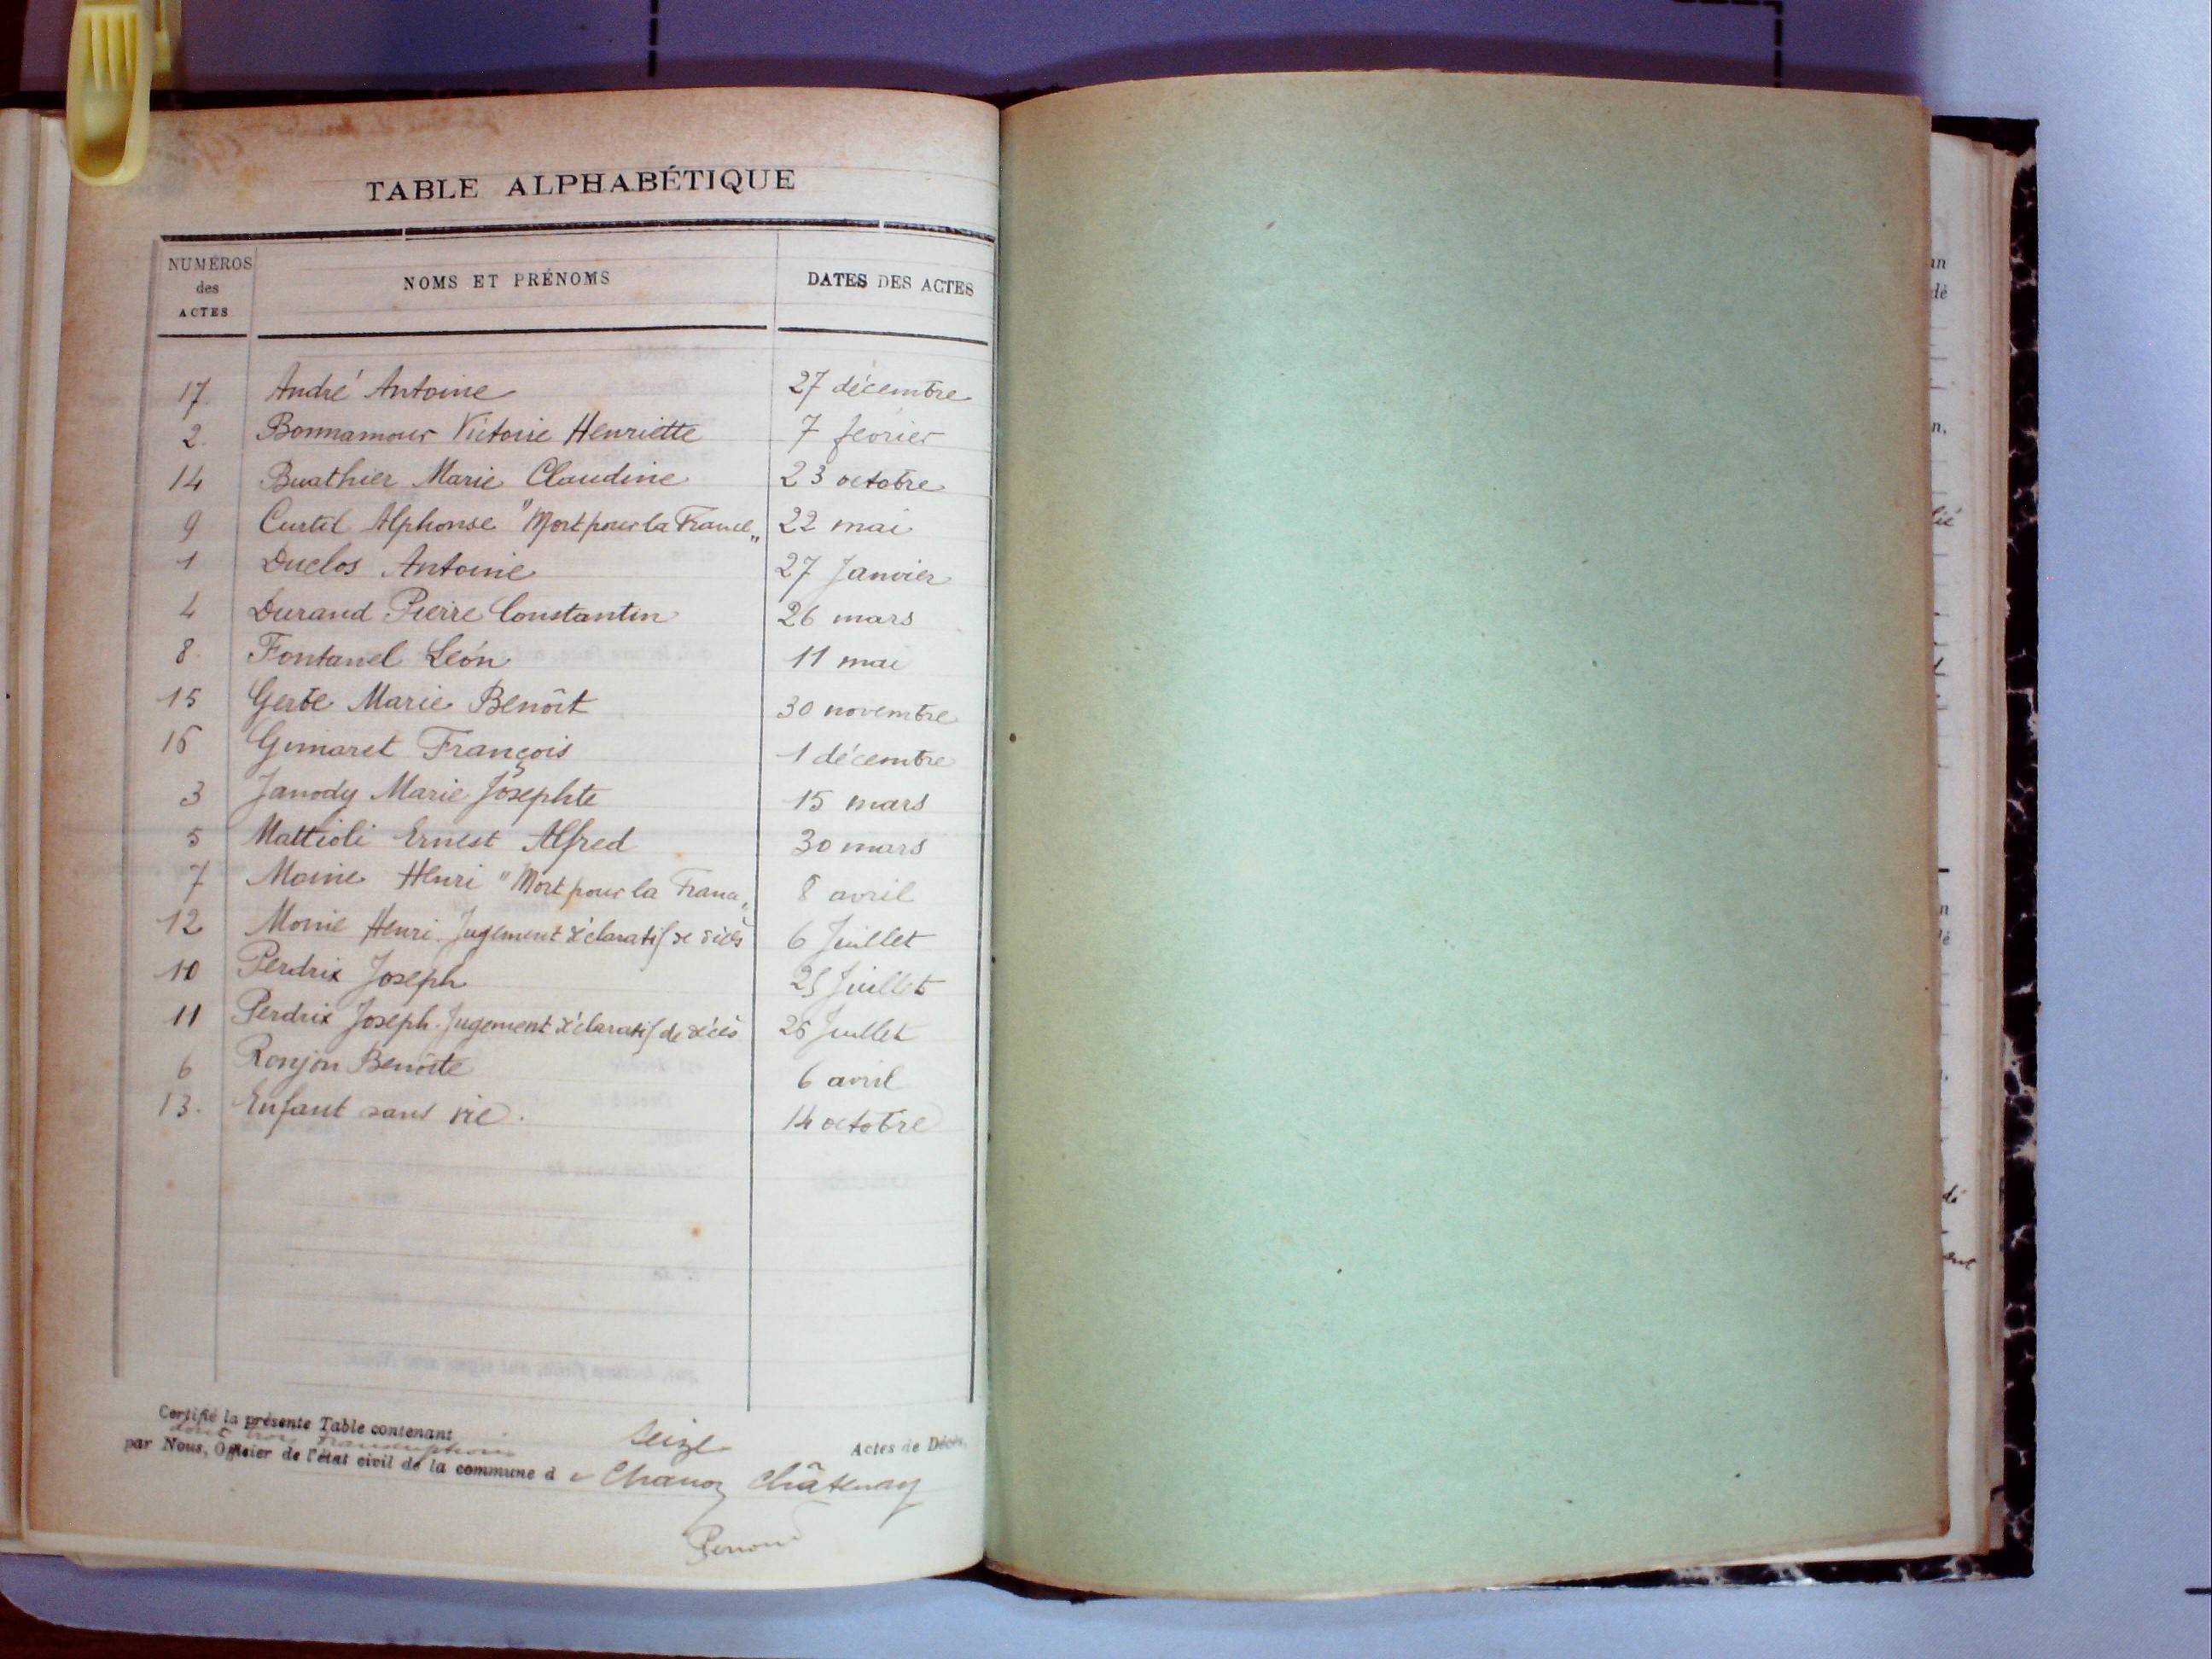 TABLE ALPHABÉTIQUE
NUMÉROS des ACTES NOMS ET PRÉNOMS DATES DES ACTES
17. André Antoine 27 décembre
2. Bonnamour Victorie Henriette 7 février
14 Buathier Marie Claudine 23 octobre
9 Curtil Alphonse "Mort pour la France„ 22 mai
1 Duclos Antoine 27 Janvier
4 Durand Pierre Constantin 26 mars
8. Fontanel Léon 11 mai
15 Gerbe Marie Benoît 30 novembre
16 Gimaret François 1 décembre
3 Janody Marie Josephte 15 mars
5 Mattioli Ernest Alfred 30 mars
7 Moine Henri "Mort pour la France„ 8 avril
12 Moine Henri. Jugement déclaratif de décès 6 Juillet
10 Perdrix Joseph 25 Juillet
11 Perdrix Joseph. Jugement déclaratif de décès 26 Juillet
6 Ronjon Benoîte 6 avril
13. Enfant sans vie. 14 octobre
Certifié la présente Table contenant seize Actes de Décès,
dont trois transcriptions
par Nous, Officier de l'état civil de la commune d e Chanoz Châtenay